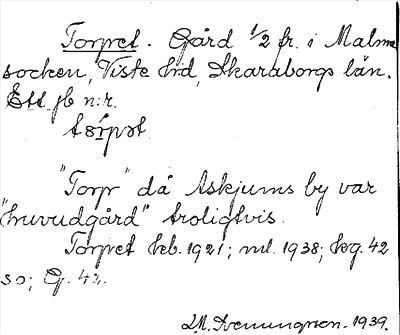 Torpet. Gård 1/2 fr. i Malma
socken, Viste hrd, Skaraborgs län.
Ett jb n:r.
"Torp" då Askjums by var
"huvudgård" troligtvis.
Torpet keb. 1921; ml. 1938; krg. 42
so; Ej. 42.
1939.